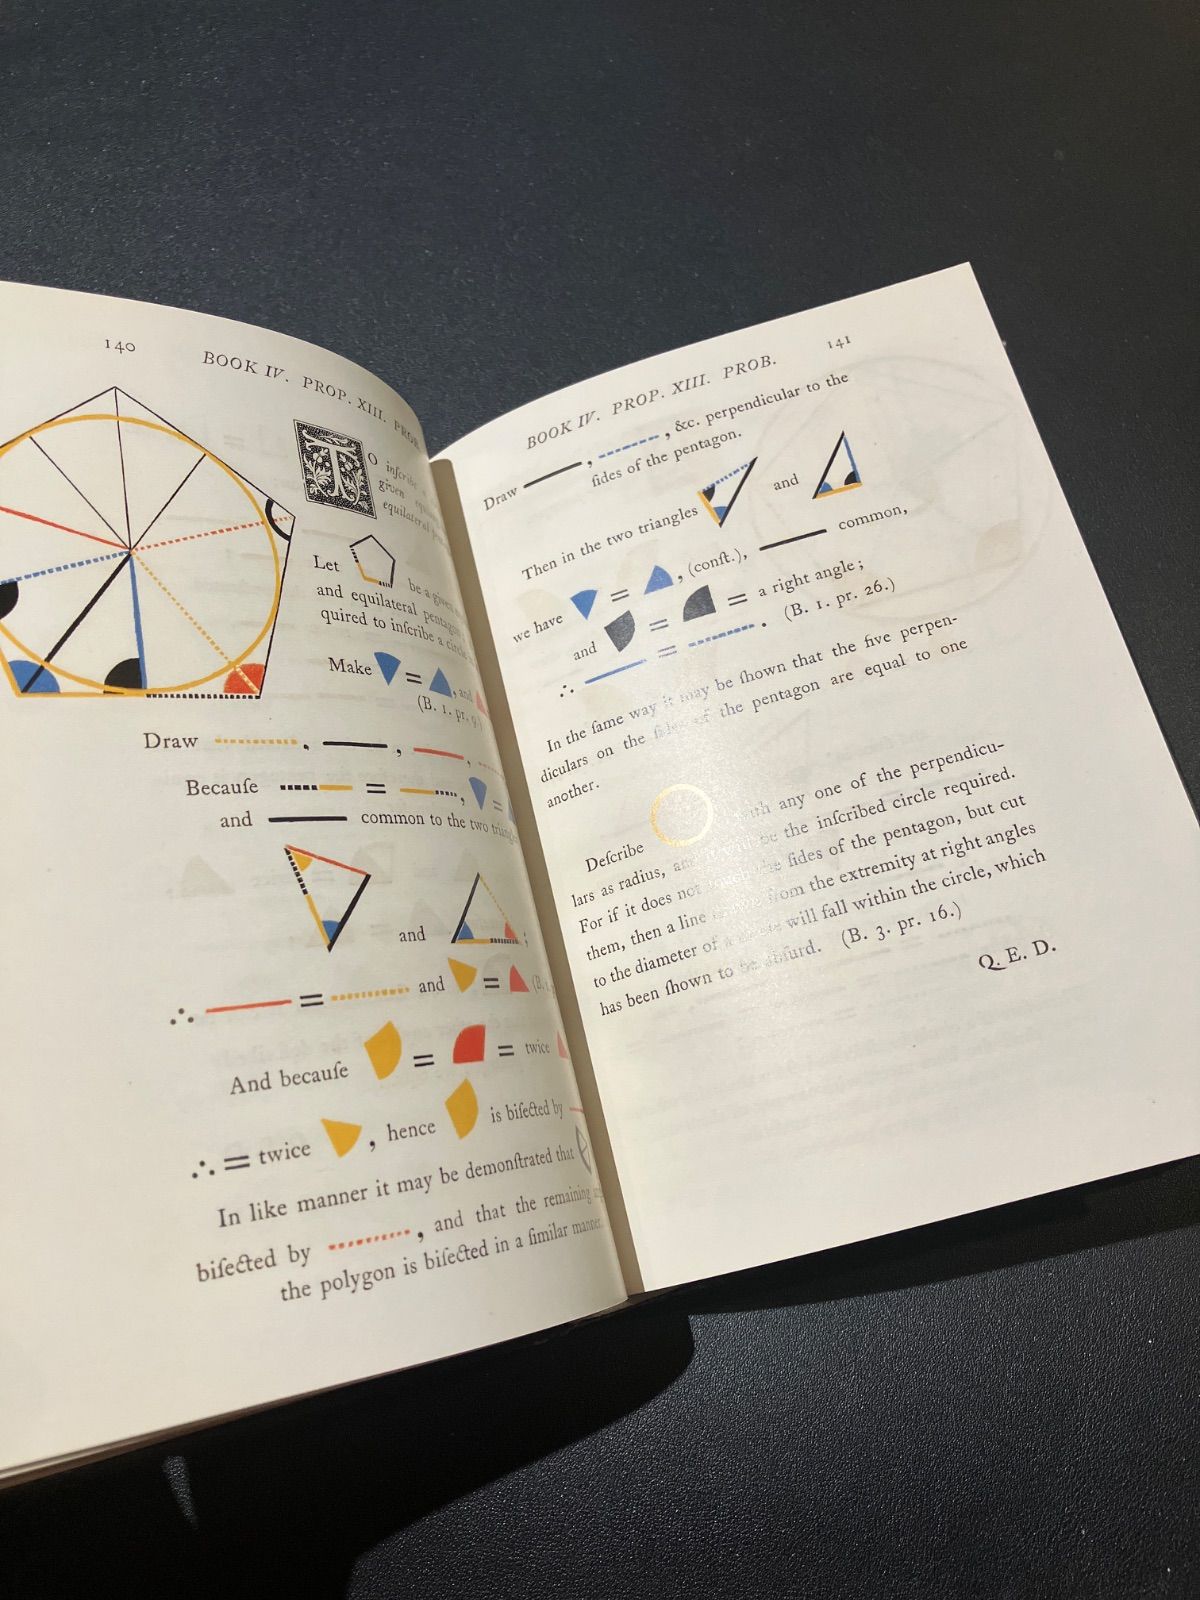 140
BOOK IV. PROP. XIII. PROB.
TO inſcribe a
given
equilateral
Let be a given
and equilateral pentagon
quired to inſcribe a circle
Make = , and
(B. 1. pr. 9.)
Draw , , ,
Becauſe = , =
and common to the two triangles
and ;
∴ = and = (B. 1.
And becauſe = = twice
∴ = twice , hence is biſected by
In like manner it may be demonſtrated that
biſected by , and that the remaining
the polygon is biſected in a ſimilar manner.
BOOK IV. PROP. XIII. PROB. 141
Draw , , &c. perpendicular to the
ſides of the pentagon.
Then in the two triangles and
we have = , (conſt.), common,
and = = a right angle;
∴ = . (B. 1. pr. 26.)
In the ſame way it may be ſhown that the five perpen-
diculars on the ſides of the pentagon are equal to one
another.
Deſcribe with any one of the perpendicu-
lars as radius, and it will be the inſcribed circle required.
For if it does not the ſides of the pentagon, but cut
them, then a line from the extremity at right angles
to the diameter of a will fall within the circle, which
has been ſhown to be abſurd. (B. 3. pr. 16.)
Q. E. D.